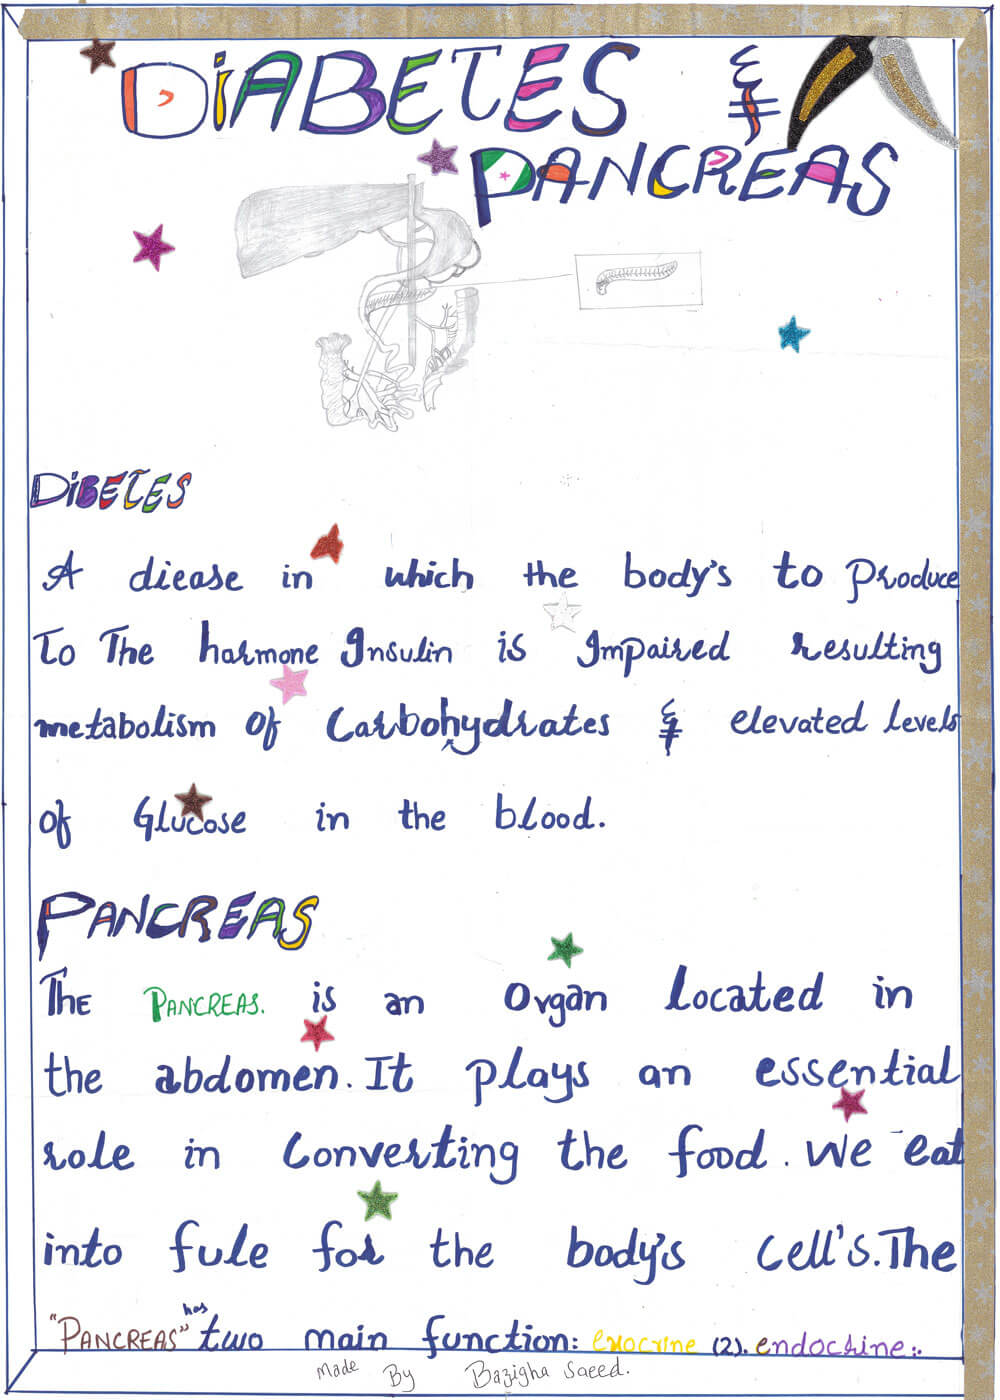 DiABETES &
PANCREAS
DiBETES
A diease in which the body's to produce
To The harmone Insulin is Impaired resulting
metabolism of Carbohydrates & elevated levels
of Glucose in the blood.
PANCREAS
The PANCREAS. is an Organ located in
the abdomen. It plays an essential
role in Converting the food. We eat
into fule for the body's cell's. The
"PANCREAS" has two main function: exocrine (2). endocrine:.
Made By Bazigha Saeed.